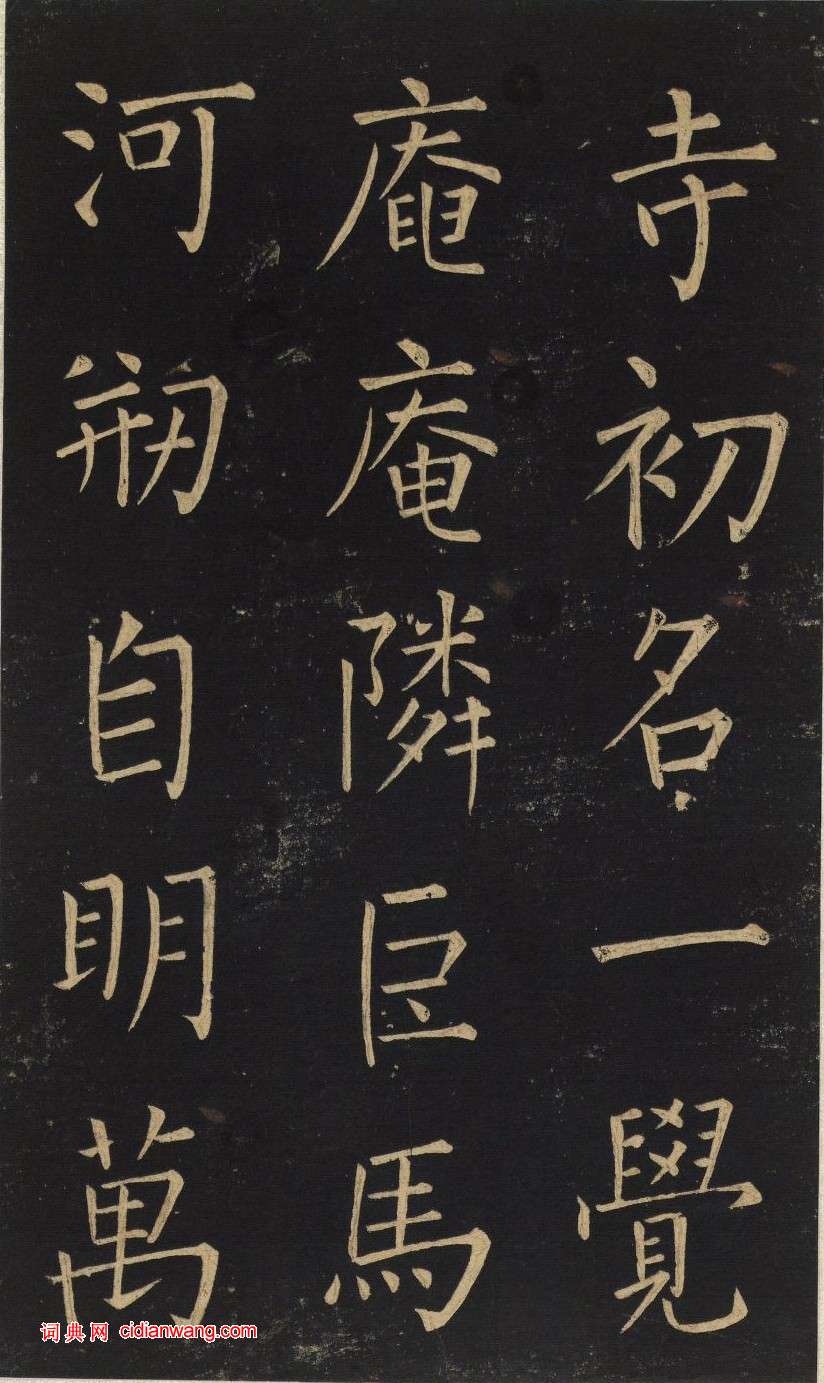 寺初名一覺
庵庵隣巨馬
河剏自明萬
词典网 cidianwang.com